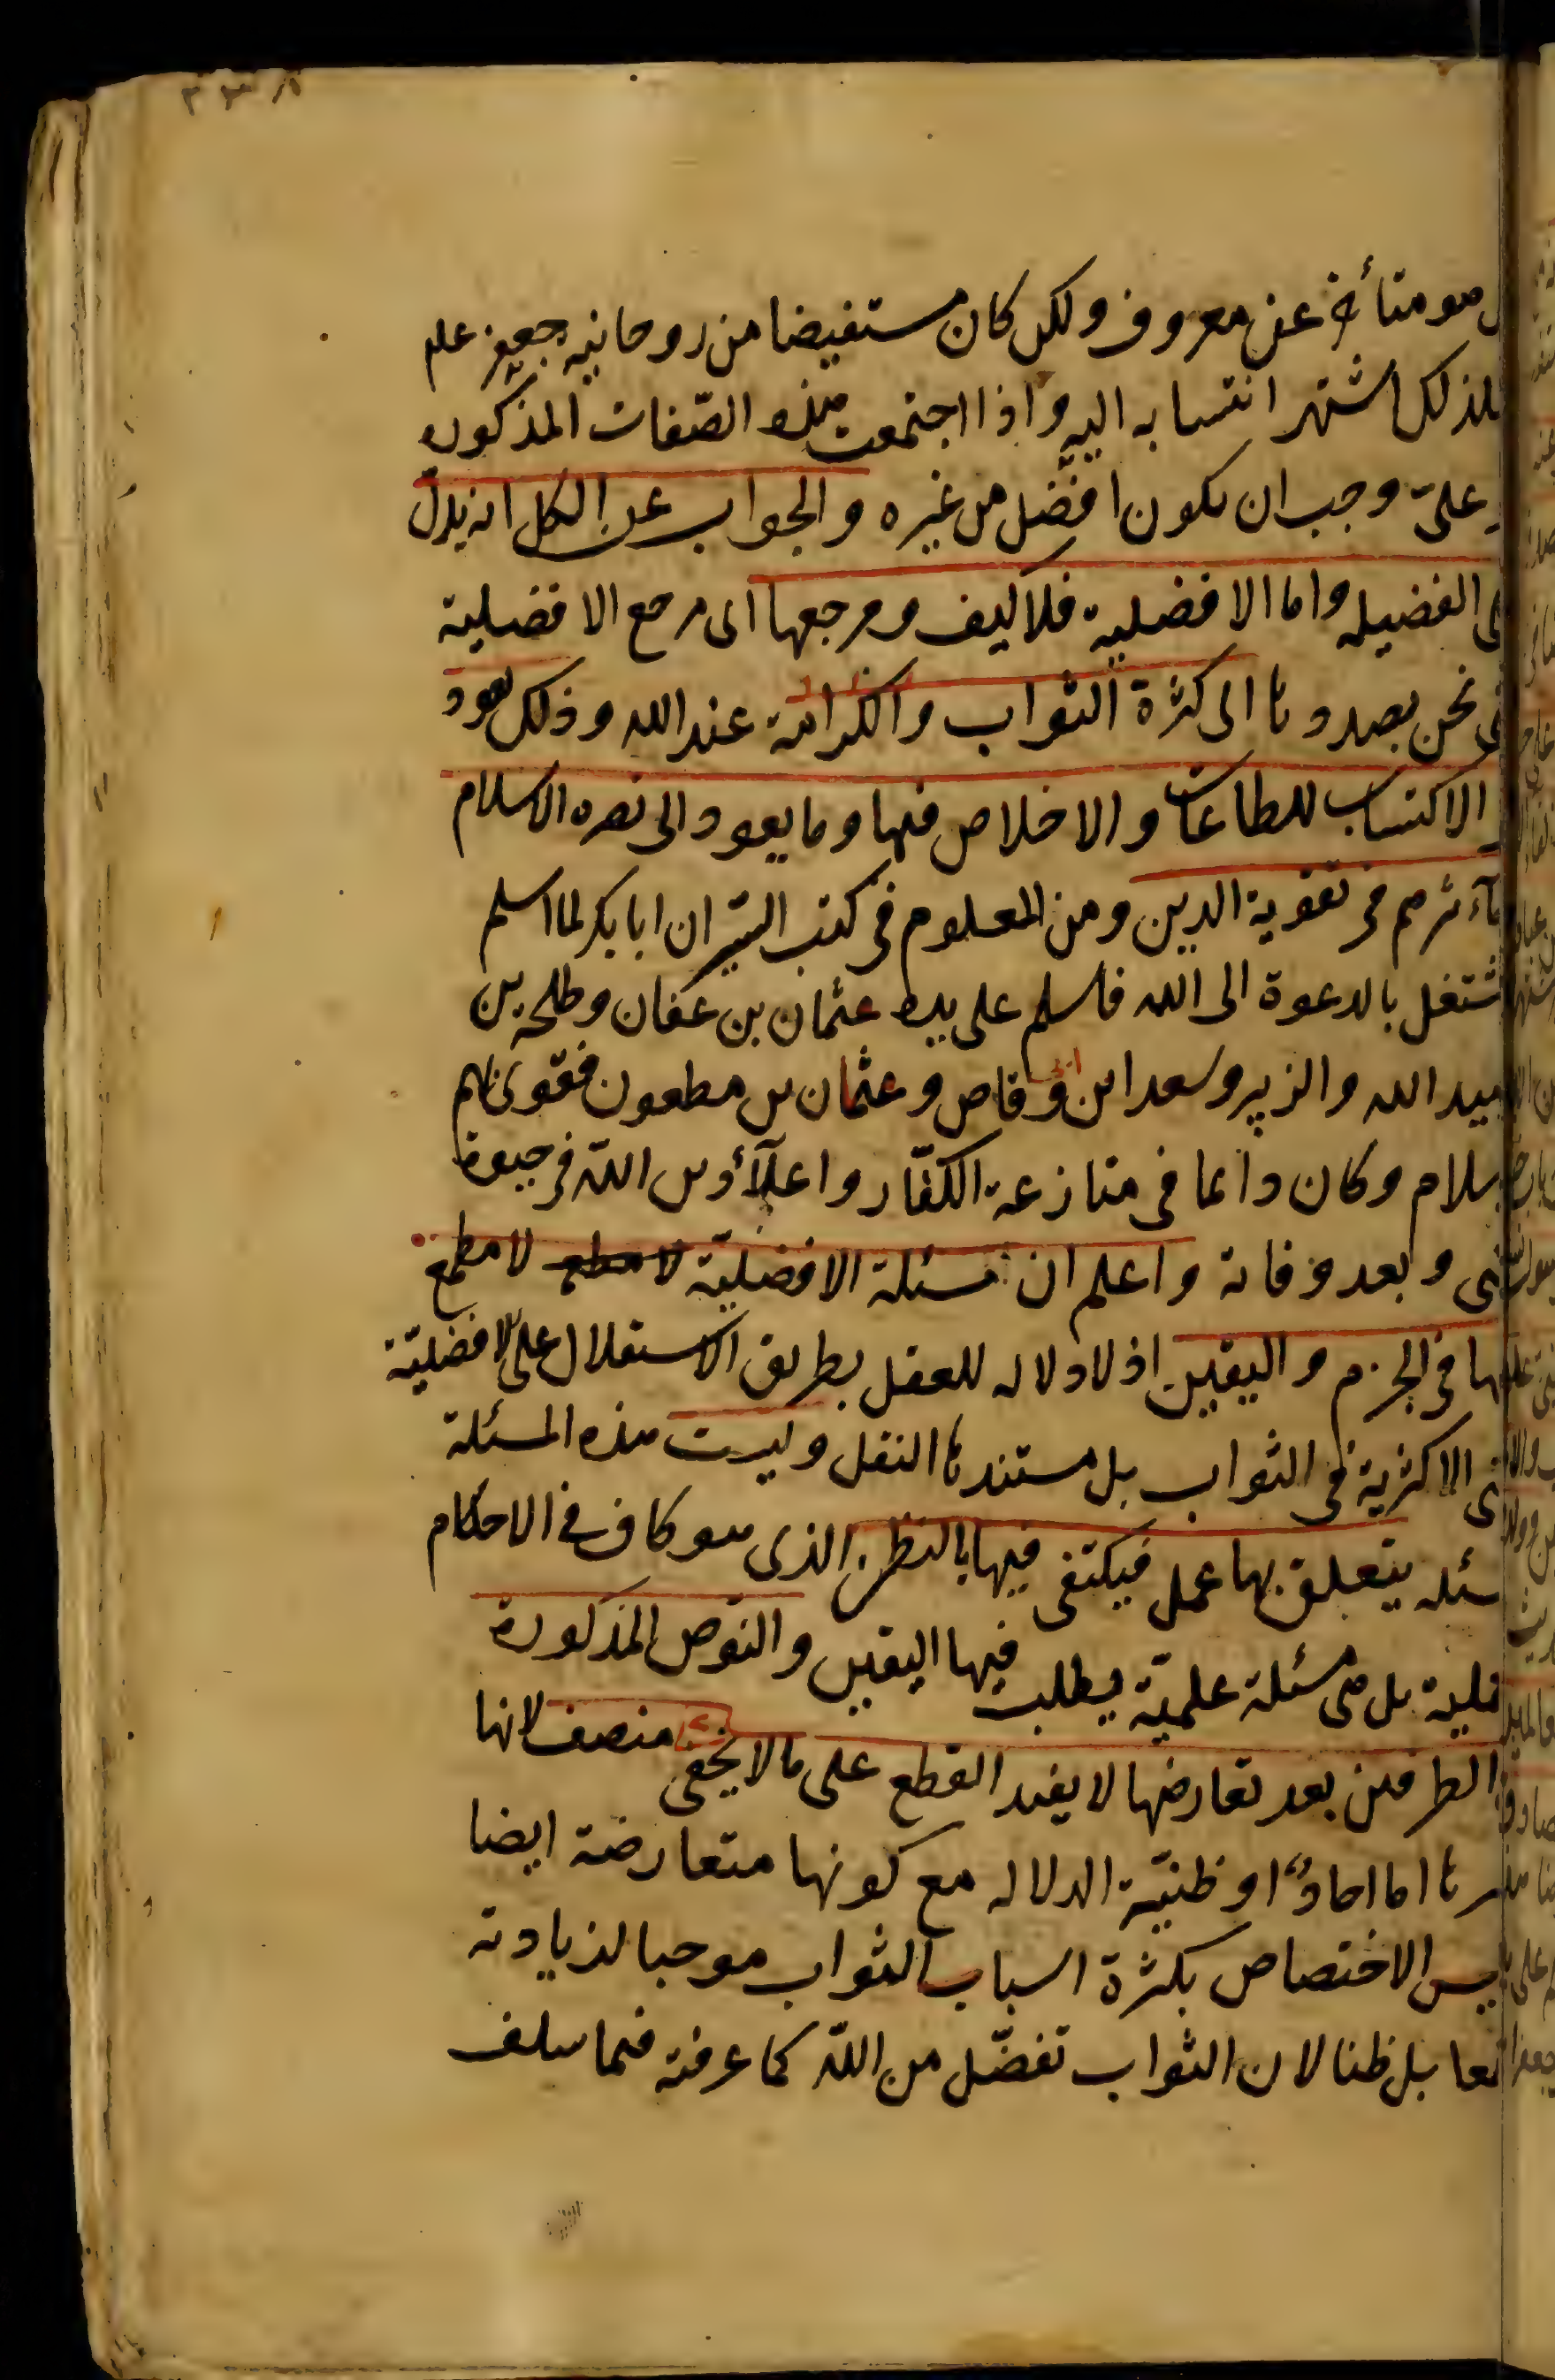 هو متأخر عن معروف ولكن كان مستفيضا من روحانيه جعفر علم
فلذلك اشتهر انتسابه اليه واذا اجتمعت هذه الصّفات المذكوره
علىّ وجب ان يكون افضّل من غيره والجواب عن الكل انه يدلّ
الفضيله واما الافضلية فلا كيف ومرجعها الى مرجع الافضلية
نحن بصددها الى كثرة الثواب والكرامة عند الله وذلك يعود
الاكتساب للطاعات والاخلاص فيها وما يعود الى نصره الاسلام
مآءثرهم فى تقوية الدين ومن المعلوم فى كتب السّير ان ابا بكر لما اسلم
شتغل بالدعوة الى الله فاسلم على يده عثمان بن عفان وطلحه بن
عبيد الله والزبير وسعد ابن ابى وقاص وعثمان بن مطعون فقوى بهم
سلام وكان دائما فى منازعة الكفّار واعلآء دين الله فى حيوة
نبى وبعد وفاته واعلم ان مسئلة الافضليّة لا مطمع لا مطمع
فيها فى الجزم واليقين اذ لا دلاله للعقل بطريق الاستقلال على الافضليّة
الاكثرية فى الثواب بل مستندها النقل وليست هذه المسئلة
سئله يتعلق بها عمل فيكتفى فيها بالنظن الذى هو كاف فى الاحكام
بل هى مسئلة علميّة يطلب فيها اليقين والنوص المذكورة
الطرفين بعد تعارضها لا يفيد القطع على ما لا يخفى منصف لانها
سرها اما احادٌ او ظنيّة الدلاله مع كونها متعارضة ايضا
ليس الاختصاص بكثرة اسباب الثواب موجبا لزيادته
بل ظنا لان الثواب تفضّل من اللّه كما عرفته فيما سلف